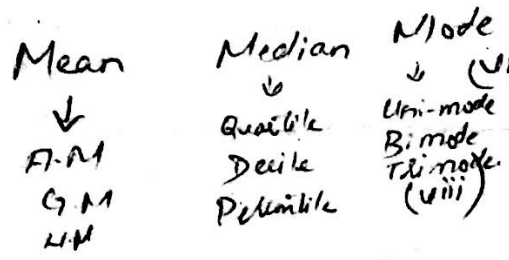 Mean
↓
A.M
G.M
H.M
Median
↓
Quartile
Decile
Percentile
Mode
↓
Uni-mode
Bi mode
Tri mode.
(viii)